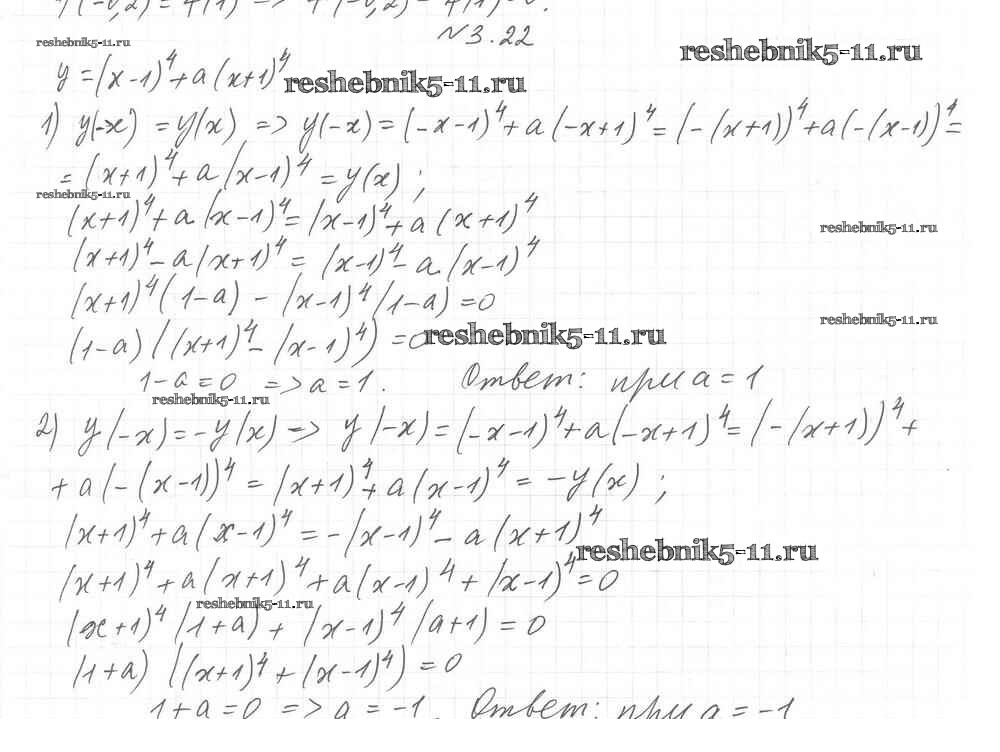 y(-0,2) = y(1) =>
N 3.22
reshebnik5-11.ru
reshebnik5-11.ru
y = (x-1)^4 + a(x+1)^4
reshebnik5-11.ru
1) y(-x) = y(x) => y(-x) = (-x-1)^4 + a(-x+1)^4 = (-(x+1))^4 + a(-(x-1))^4 =
= (x+1)^4 + a(x-1)^4 = y(x) ;
reshebnik5-11.ru
(x+1)^4 + a(x-1)^4 = (x-1)^4 + a(x+1)^4
reshebnik5-11.ru
(x+1)^4 - a(x+1)^4 = (x-1)^4 - a(x-1)^4
(x+1)^4 (1-a) - (x-1)^4 (1-a) = 0
reshebnik5-11.ru
(1-a)((x+1)^4 - (x-1)^4) = 0
reshebnik5-11.ru
1-a=0 => a=1. Ответ: при a=1
reshebnik5-11.ru
2) y(-x) = -y(x) => y(-x) = (-x-1)^4 + a(-x+1)^4 = (-(x+1))^4 +
+ a(-(x-1))^4 = (x+1)^4 + a(x-1)^4 = -y(x) ;
(x+1)^4 + a(x-1)^4 = -(x-1)^4 - a(x+1)^4
reshebnik5-11.ru
(x+1)^4 + a(x+1)^4 + a(x-1)^4 + (x-1)^4 = 0
reshebnik5-11.ru
(x+1)^4 (1+a) + (x-1)^4 (a+1) = 0
(1+a) ((x+1)^4 + (x-1)^4) = 0
1+a=0 => a=-1. Ответ: при a=-1